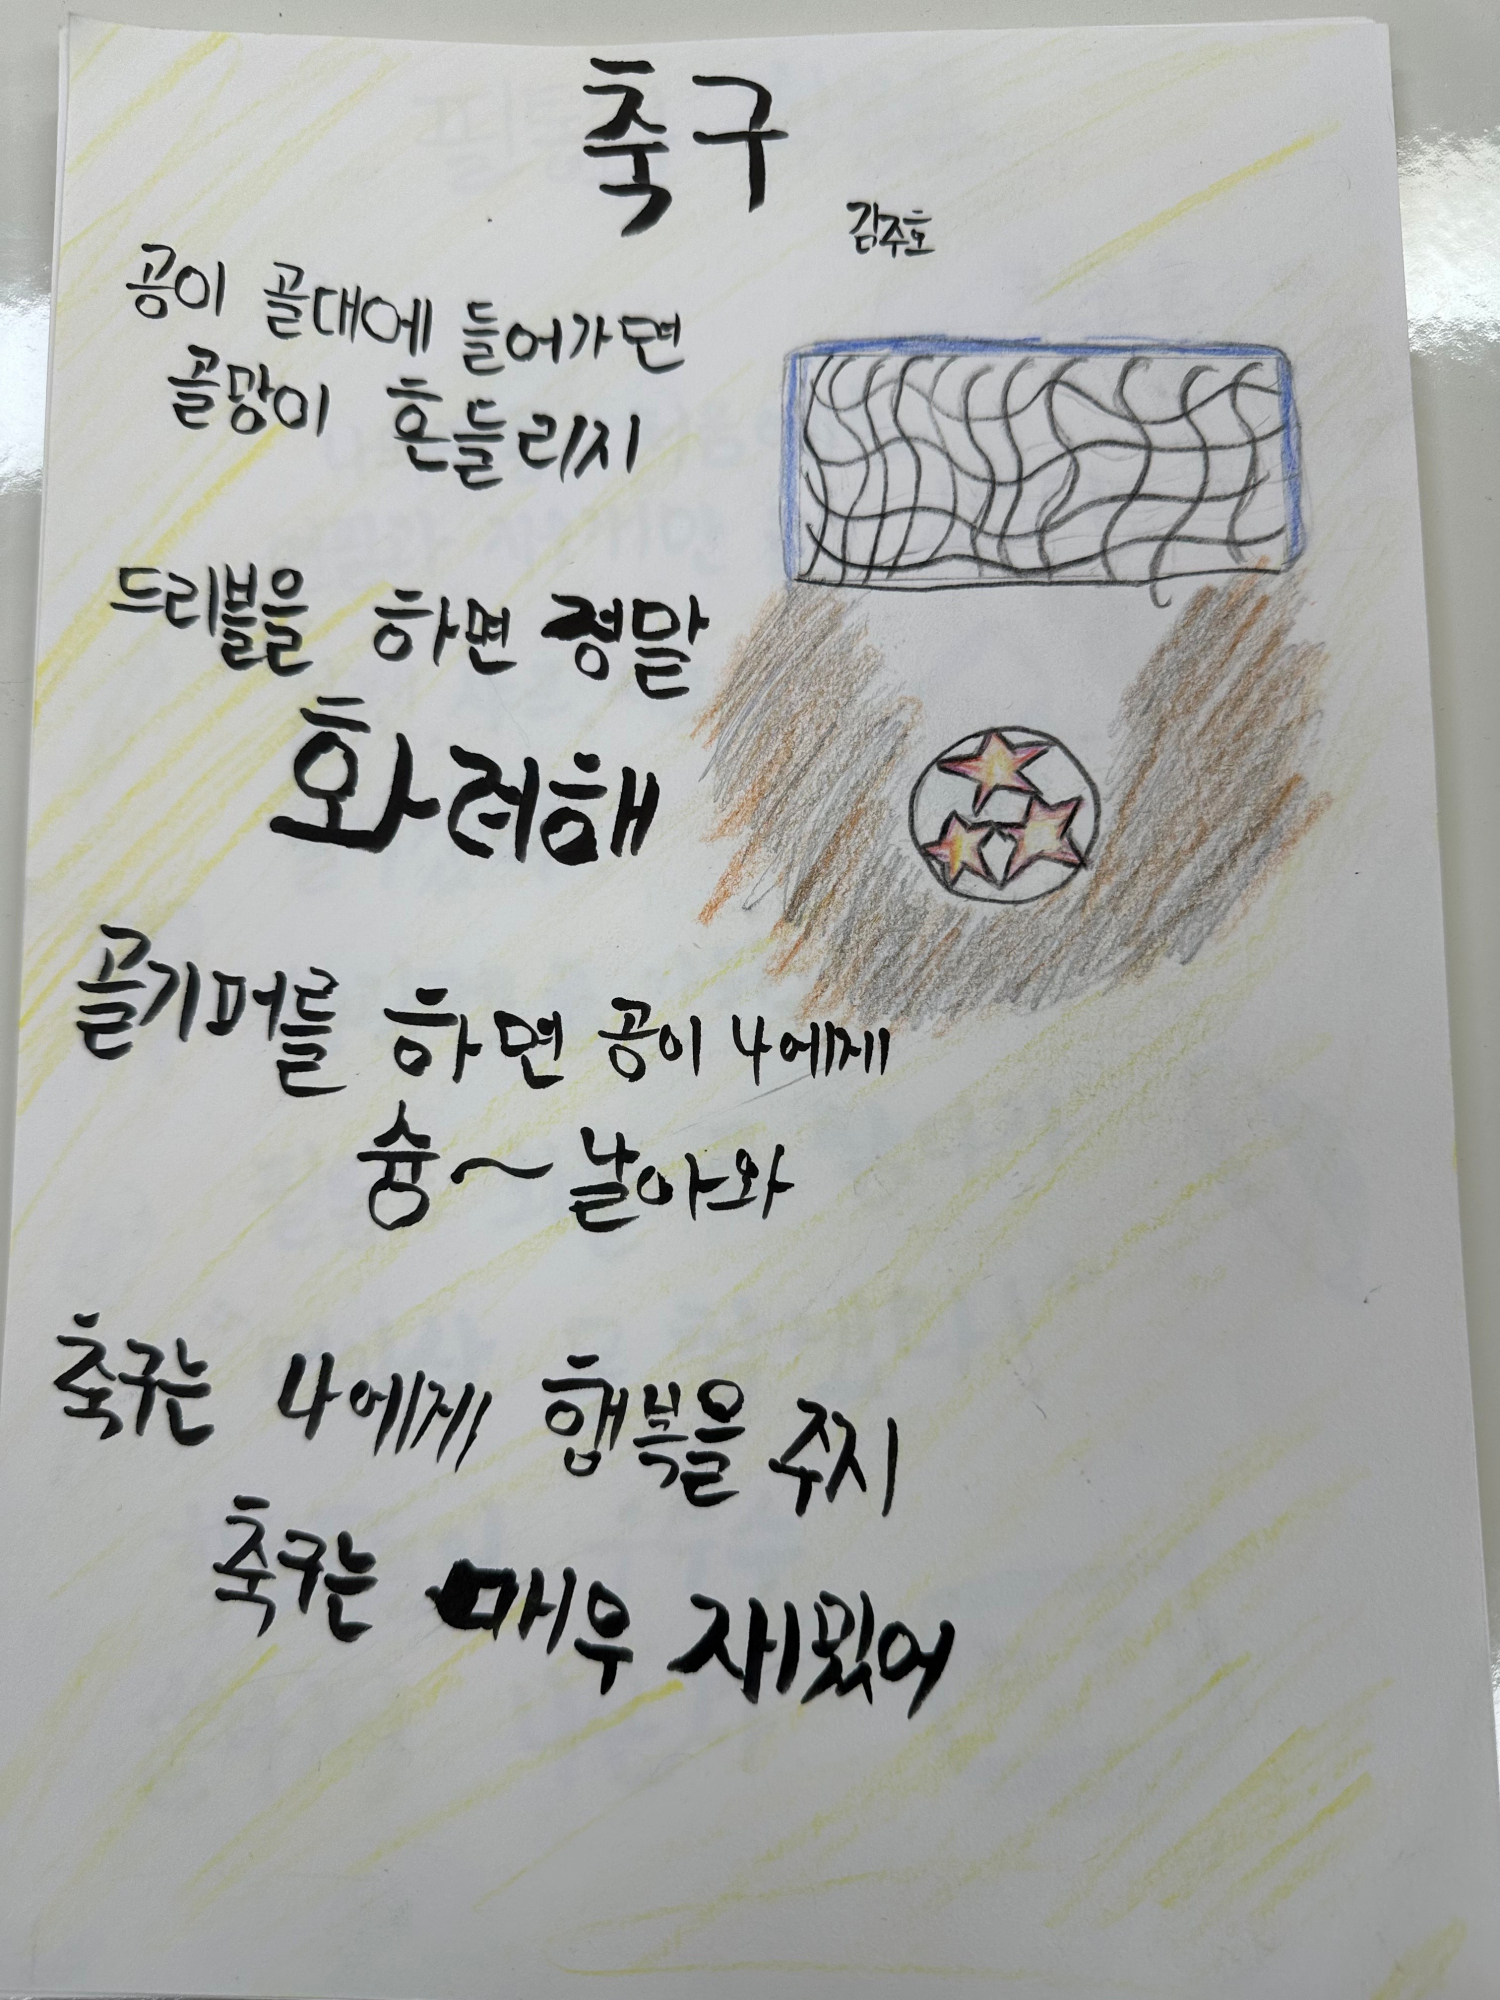 축구
김주호
공이 골대에 들어가면
골망이 흔들리지
드리블을 하면 정말
화려해
골키퍼를 하면 공이 나에게
슝~ 날아와
축구는 나에게 행복을 주지
축구는 매우 재밌어